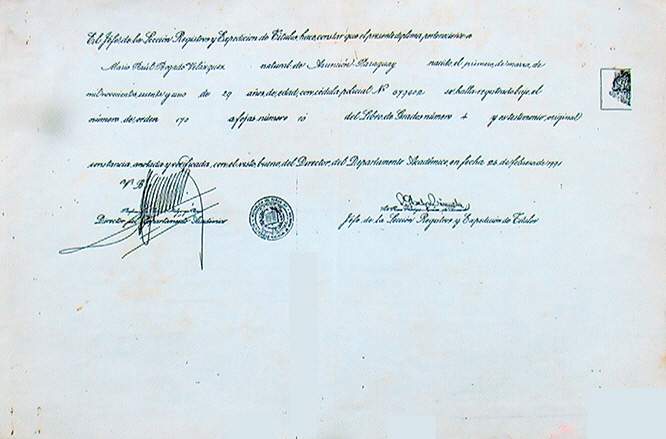 El Jefe de la Sección Registros y Expedición de Títulos, hace constar que el presente diploma, perteneciente a
Mario Raúl Bogado Velázquez natural de Asunción Paraguay nacido el primero de marzo de
mil novecientos sesenta y uno de 29 años de edad, con cédula policial Nº se halla registrado bajo el
número de orden 170 a fojas número 10 del Libro de Grados número 4 y es testimonio original
constancia, anotada y verificada, con el visto bueno del Director del Departamento Académico, en fecha 26 de febrero de 1991
Vº Bº
Director del Departamento Académico
Jefe de la Sección Registros y Expedición de Títulos